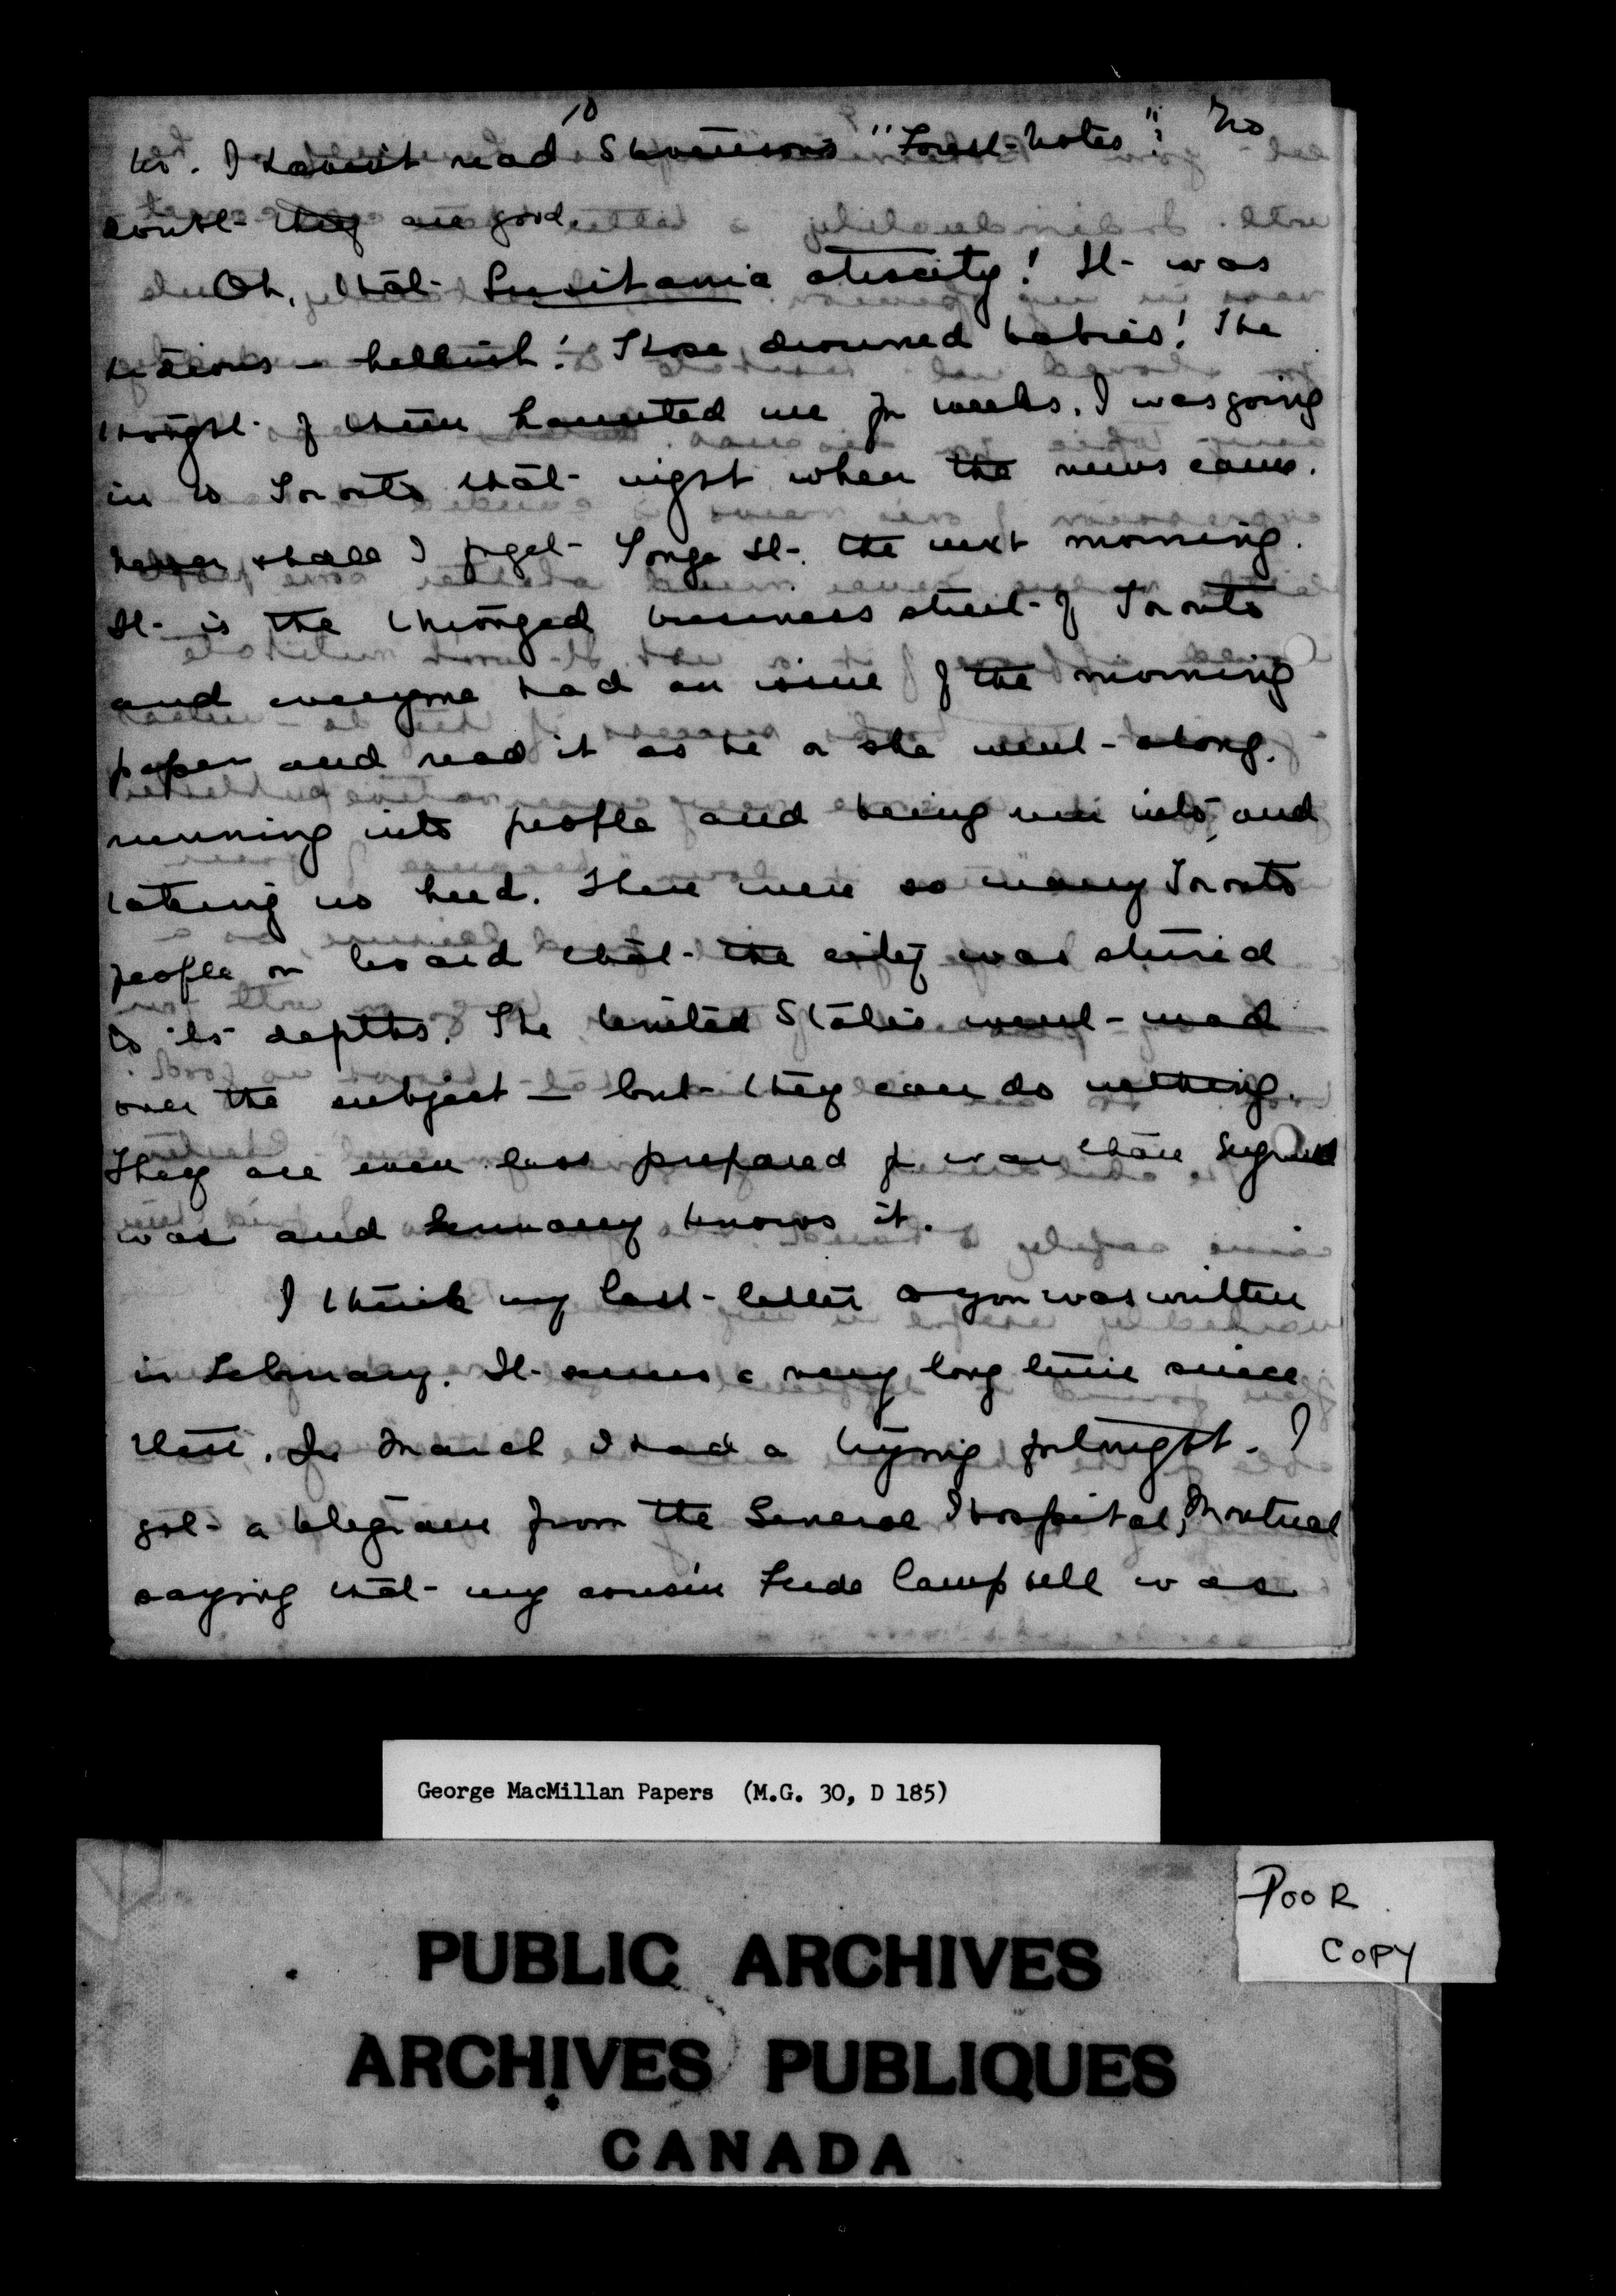 10
No. I haven't read Stevensons "Forest-Notes". No
doubt they are good.
Oh, that Lusitania atrocity! It was
hideous - hellish! Those drowned babies! The
thought of them haunted me for weeks. I was going
in to Toronto that night when the news came.
Never shall I forget Yonge St. the next morning.
It is the thronged business street of Toronto
and everyone had an issue of the morning
paper and read it as he or she went along,
running into people and being run into, and
taking no heed. There were so many Toronto
people on board that the city was stirred
to its depths. The United States went mad
over the subject - but they can do nothing.
They are even less prepared for war than England
was and Germany knows it.
I think my last letter to you was written
in February. It seems a very long time since
then. In March I had a trying fortnight. I
got a telegram from the General Hospital, Montreal
saying that my cousin Frede Campbell was
George MacMillan Papers (M.G. 30, D 185)
POOR
COPY
PUBLIC ARCHIVES
ARCHIVES PUBLIQUES
CANADA